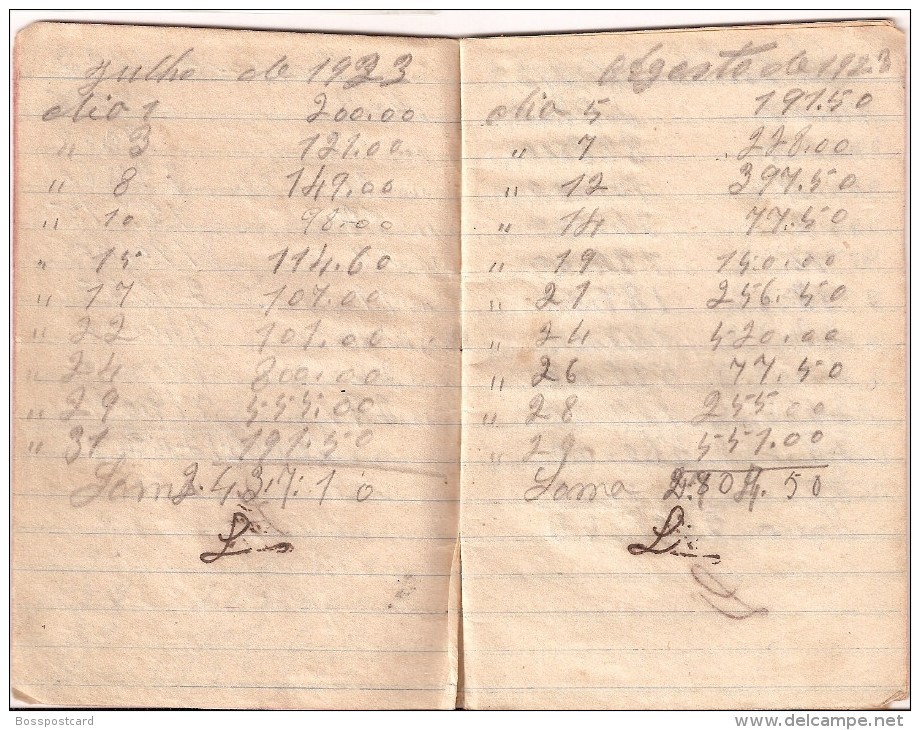 Julho de 1923
dia 1 200.00
" 3 121.00
" 8 149.00
" 10 98.00
" 15 114.60
" 17 107.00
" 22 101.00
" 24 800.00
" 29 555.00
" 31 191.50
Soma 2.4.3.7.10
L
Agosto de 1923
dia 5 191.50
" 7 228.00
" 12 397.50
" 14 77.50
" 19 150.00
" 21 256.50
" 24 520.00
" 26 77.50
" 28 255.00
" 29 551.00
Soma 2.704.50
L
Bosspostcard
www.delcampe.net